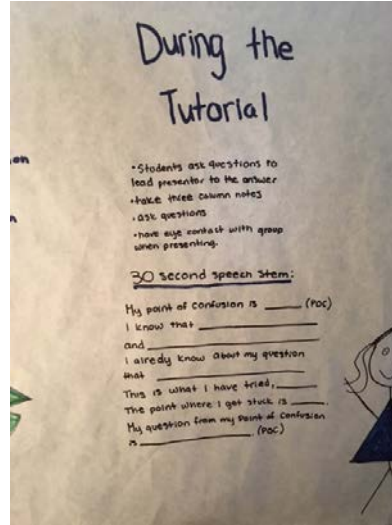 During the
Tutorial
on
•Students ask questions to
lead presentor to the answer
•take three column notes
•ask questions
•have eye contact with group
when presenting.
30 second speech stem:
My point of confusion is ______ (POC)
I know that ______
and ______
I alredy know about my question
that ______
This is what I have tried, ______
The point where I get stuck is ______.
My question from my Point of Confusion
is ______. (POC)